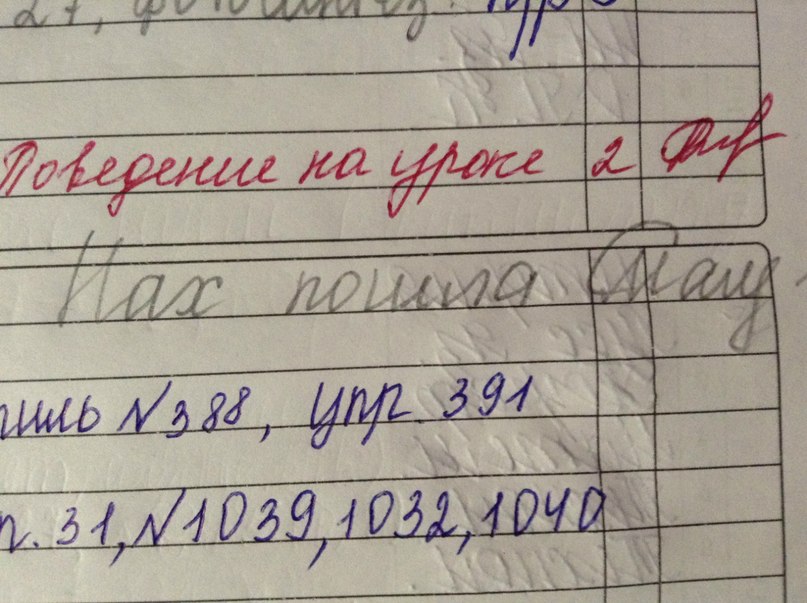 Поведение на уроке 2
Нах пошла
№388, упр. 391
п. 31, №1039, 1032, 1040